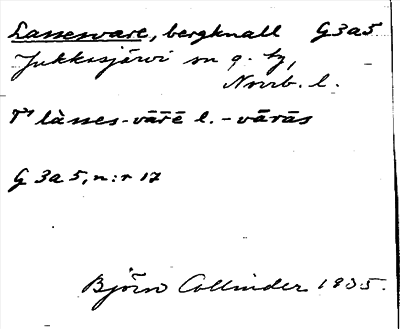 Lassesvare, bergknall G3a5
Jukkasjärvi sn o. tg,
Norrb. l.
làsses-vārē l. -vārās
G 3a 5, n:r 17
Björn Collinder 1935.